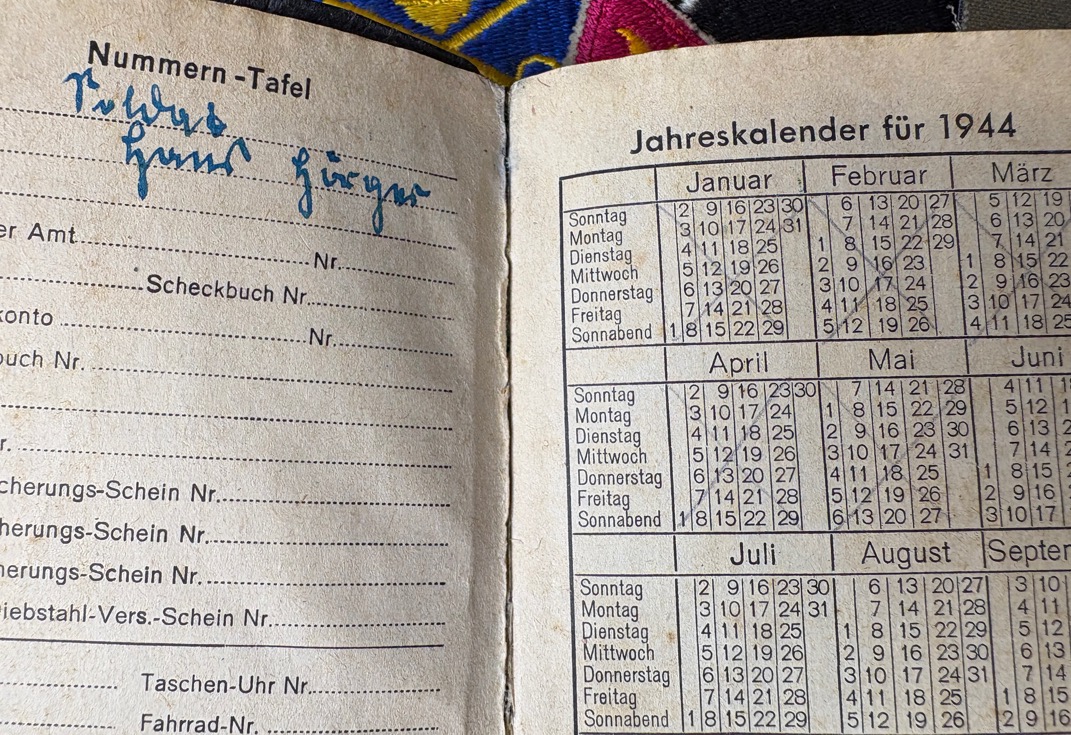 Nummern-Tafel
Soldat
Hans Hürger
er Amt Nr.
Scheckbuch Nr.
konto Nr.
buch Nr.
r.
cherungs-Schein Nr.
herungs-Schein Nr.
herungs-Schein Nr.
iebstahl-Vers.-Schein Nr.
Taschen-Uhr Nr.
Fahrrad-Nr.
Jahreskalender für 1944
Januar Februar März
Sonntag 2 9 16 23 30 6 13 20 27 5 12 19
Montag 3 10 17 24 31 7 14 21 28 6 13 20
Dienstag 4 11 18 25 1 8 15 22 29 7 14 21
Mittwoch 5 12 19 26 2 9 16 23 1 8 15 22
Donnerstag 6 13 20 27 3 10 17 24 2 9 16 23
Freitag 7 14 21 28 4 11 18 25 3 10 17 24
Sonnabend 1 8 15 22 29 5 12 19 26 4 11 18 25
April Mai Juni
Sonntag 2 9 16 23 30 7 14 21 28 4 11
Montag 3 10 17 24 1 8 15 22 29 5 12
Dienstag 4 11 18 25 2 9 16 23 30 6 13
Mittwoch 5 12 19 26 3 10 17 24 31 7 14
Donnerstag 6 13 20 27 4 11 18 25 1 8 15
Freitag 7 14 21 28 5 12 19 26 2 9 16
Sonnabend 1 8 15 22 29 6 13 20 27 3 10 17
Juli August Septer
Sonntag 2 9 16 23 30 6 13 20 27 3 10
Montag 3 10 17 24 31 7 14 21 28 4 11
Dienstag 4 11 18 25 1 8 15 22 29 5 12
Mittwoch 5 12 19 26 2 9 16 23 30 6 13
Donnerstag 6 13 20 27 3 10 17 24 31 7 14
Freitag 7 14 21 28 4 11 18 25 1 8 15
Sonnabend 1 8 15 22 29 5 12 19 26 2 9 16